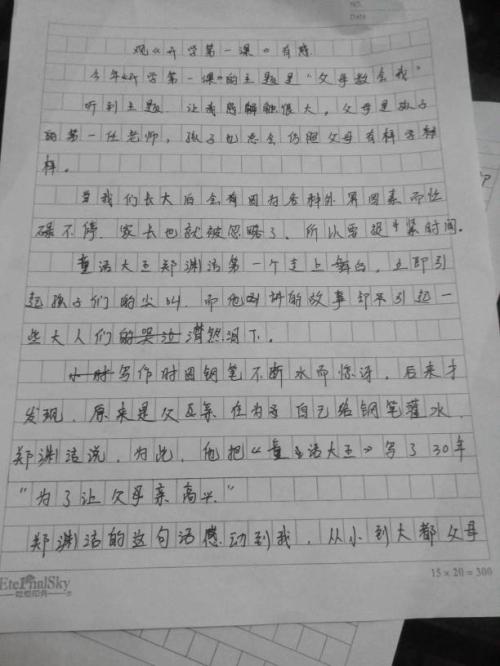 NO.
DATE
观《开学第一课》有感
今年《开学第一课》的主题是“父母教会我”
听到主题，让我感触很大，父母是孩子
的第一任老师，孩子也总会仿照父母有样学样
样。
当我们长大后会有因为各种外界因素而忙
碌不停，家长也就被忽略了，所以要抓紧时间。
童话大王郑渊洁第一个走上舞台，立即引
起孩子们的尖叫，而他所讲的故事却不引起一
些大人们的哭泣潸然泪下。
小时写作时因钢笔不断水而惊讶，后来才
发现，原来是父亲在为自己给钢笔灌水，
郑渊洁说，为此，他把《童话大王》写了30年
“为了让父母亲高兴”
郑渊洁的这句话感动到我，从小到大都父母
EternalSky
15×20=300